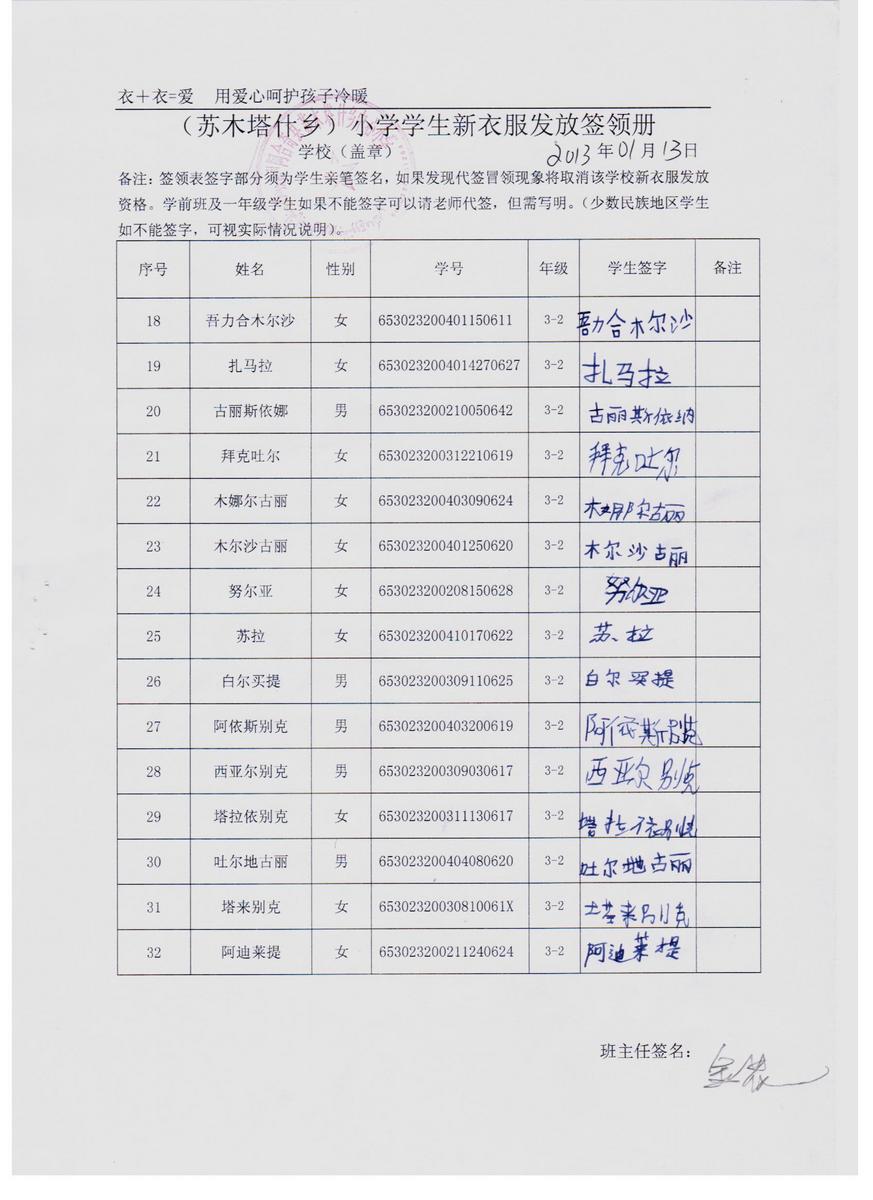 衣＋衣=爱 用爱心呵护孩子冷暖
（苏木塔什乡）小学学生新衣服发放签领册
学校（盖章） 2013 年 01 月 13 日
备注：签领表签字部分须为学生亲笔签名，如果发现代签冒领现象将取消该学校新衣服发放
资格。学前班及一年级学生如果不能签字可以请老师代签，但需写明。（少数民族地区学生
如不能签字，可视实际情况说明）。
序号 姓名 性别 学号 年级 学生签字 备注
18 吾力合木尔沙 女 653023200401150611 3-2 吾力合木尔沙
19 扎马拉 女 6530232004014270627 3-2 扎马拉
20 古丽斯依娜 男 653023200210050642 3-2 古丽斯依纳
21 拜克吐尔 女 653023200312210619 3-2 拜克吐尔
22 木娜尔古丽 女 653023200403090624 3-2 木娜尔古丽
23 木尔沙古丽 女 653023200401250620 3-2 木尔沙古丽
24 努尔亚 女 653023200208150628 3-2 努尔亚
25 苏拉 女 653023200410170622 3-2 苏拉
26 白尔买提 男 653023200309110625 3-2 白尔买提
27 阿依斯别克 男 653023200403200619 3-2 阿依斯别克
28 西亚尔别克 男 653023200309030617 3-2 西亚尔别克
29 塔拉依别克 女 653023200311130617 3-2 塔拉依别克
30 吐尔地古丽 男 653023200404080620 3-2 吐尔地古丽
31 塔来别克 女 65302320030810061X 3-2 塔来别克
32 阿迪莱提 女 653023200211240624 3-2 阿迪莱提
班主任签名：